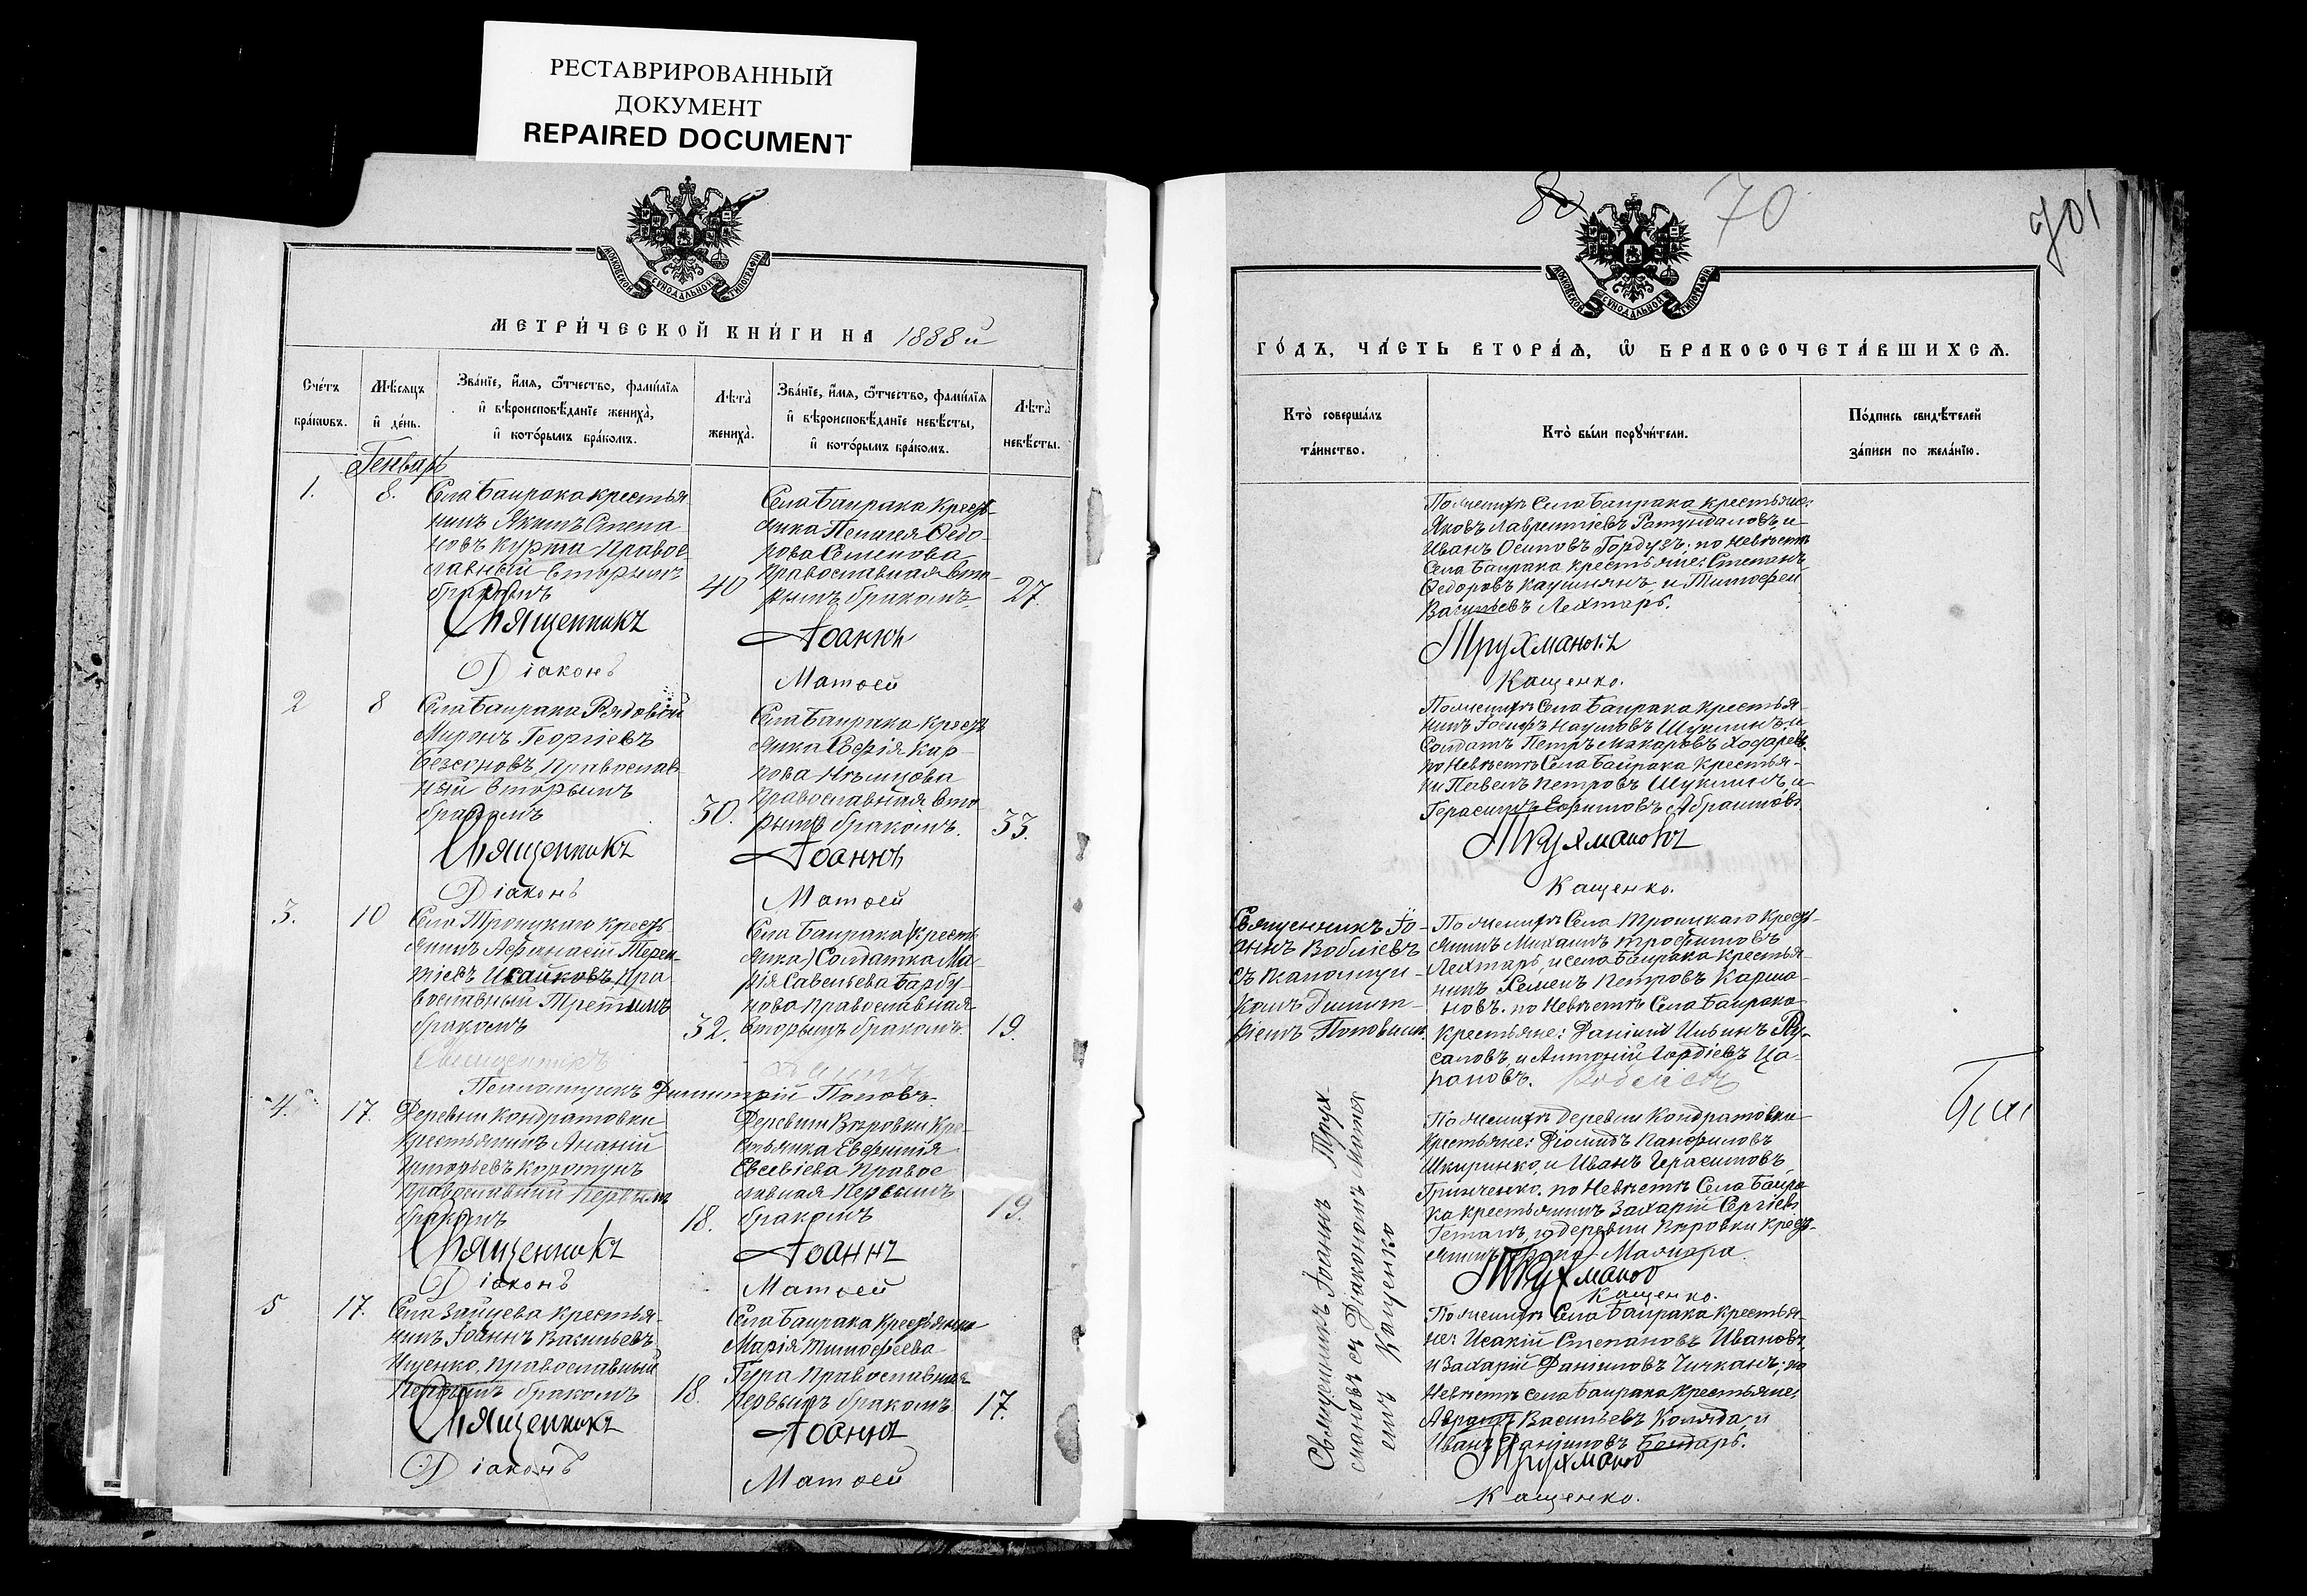 РЕСТАВРИРОВАННЫЙ
ДОКУМЕНТ
REPAIRED DOCUMENT
МОСКОВСКОЙ СУНОДАЛЬНОЙ ТИПОГРАФІИ
МЕТРИ́ЧЕСКОЙ КНИ́ГИ НА 1888 й
Сче́тъ
бра́кѡвъ.
Мѣ́сяцъ
и҆ де́нь.
Зва́нїе, и҆́мѧ, ѻ҆́тчество, фами́лїѧ
и҆ вѣроисповѣ́данїе жениха̀,
и҆ кото́рымъ бра́комъ.
Лѣта̀
жениха̀.
Зва́нїе, и҆́мѧ, ѻ҆́тчество, фами́лїѧ
и҆ вѣроисповѣ́данїе невѣ́сты,
и҆ кото́рымъ бра́комъ.
Лѣта̀
невѣ́сты.
Генварь
1.
8.
Села Баирака крестья
нинъ Якимъ Степа
новъ Курта Правос
лавный вторымъ
бракомъ
40
Села Баирака Кресть
янка Пелагея Ѳедо
рова Семенова
Православная вто
рымъ бракомъ.
27.
Священникъ Іоаннъ
Діаконъ Матѳей
2
8
Села Баирака Рядовой
Миронъ Георгіевъ
Безсоновъ, Православ
ный вторымъ
бракомъ
30.
Села Баирака Кресть
янка Софія Кар
пова Нѣмцова
Православная вто
рымъ бракомъ.
33.
Священникъ Іоаннъ
Діаконъ Матѳей
3.
10
Села Троицкаго Кресть
янинъ Афанасій Терен
тіевъ Исайковъ, Пра
вославный Третьимъ
бракомъ
32.
Села Баирака (кресть
янка) Солдатка Ма
рія Савельева Барбу
нова православная
вторымъ бракомъ.
19.
Священникъ Іоаннъ
Псаломщикъ Димитрій Поповъ.
4.
17.
Деревни Кондратовки
Крестьянинъ Ананій
Григорьевъ Коротунъ
Православный Первымъ
бракомъ
18.
Деревни Вѣровки Кре
стьянка Евфимія
Евсевіева Правос
лавная Первымъ
бракомъ
19.
Священникъ Іоаннъ
Діаконъ Матѳей
5
17.
Села Зайцева Крестья
нинъ Іоаннъ Васильевъ
Ищенко, Православный
Первымъ бракомъ
18.
Села Баирака Крестьянка
Марія Тимофеева
Гура Православная
Первымъ бракомъ
17.
Священникъ Іоаннъ
Діаконъ Матѳей
70
701
МОСКОВСКОЙ СУНОДАЛЬНОЙ ТИПОГРАФІИ
ГО́ДЪ, ЧА́СТЬ ВТОРА́Ѧ, Ѡ҆ БРАКОСОЧЕТА́ВШИХСѦ.
Кто̀ соверша́лъ
та́инство.
Кто̀ бы́ли порꙋчи́тели.
По́дпись свидѣ́телей
за́писи по жела́нїю.
По женихѣ Села Баирака крестьяне:
Яковъ Лаврентіевъ и
Иванъ Осиповъ Гордузъ; по Невѣстѣ
Села Баирака крестьяне: Степанъ
Ѳедоровъ и Тимофей
Васильевъ Лехтарь.
Трухмановъ
Кащенко.
По женихѣ Села Баирака крестья
нинъ Іосифъ Наумовъ Шуклинъ и
Солдатъ Петръ Макаровъ
по Невѣстѣ Села Баирака Крестья
не Павелъ Петровъ Шуклинъ, и
Герасимъ Ефимовъ Абрамовъ
Трухмановъ
Кащенко.
Священникъ Іо
аннъ
съ псаломщи
комъ Димит
ріемъ Поповымъ.
По женихѣ Села Троицкаго Кресть
янинъ Михаилъ Трофимовъ
Лехтарь, и села Баирака крестья
нинъ Семенъ Петровъ Карма
новъ. по Невѣстѣ Села Баирака
крестьяне: Даніилъ Ильинъ Ру
сановъ, и Антоній Гордіевъ Ца
рановъ.
Священникъ Іоаннъ Трух
мановъ съ Діакономъ Матѳ
емъ Кащенко
По женихѣ деревни Кондратовки
крестьяне: Діомидъ Панфиловъ
Шкиринко, и Иванъ Герасимовъ
Гринченко. по Невѣстѣ Села Баира
ка крестьянинъ Захарій Сергіевъ
Гетманъ, и деревни Вѣровки Кресть
янинъ
Трухмановъ
Кащенко.
По женихѣ Села Баирака крестья
не: Исакій Степановъ Ивановъ
и Захарій Даніиловъ Чичканъ; по
Невѣстѣ села Баирака крестьяне:
Аврамъ Васильевъ Коляда, и
Иванъ Даніиловъ Бондарь.
Трухмановъ
Кащенко.